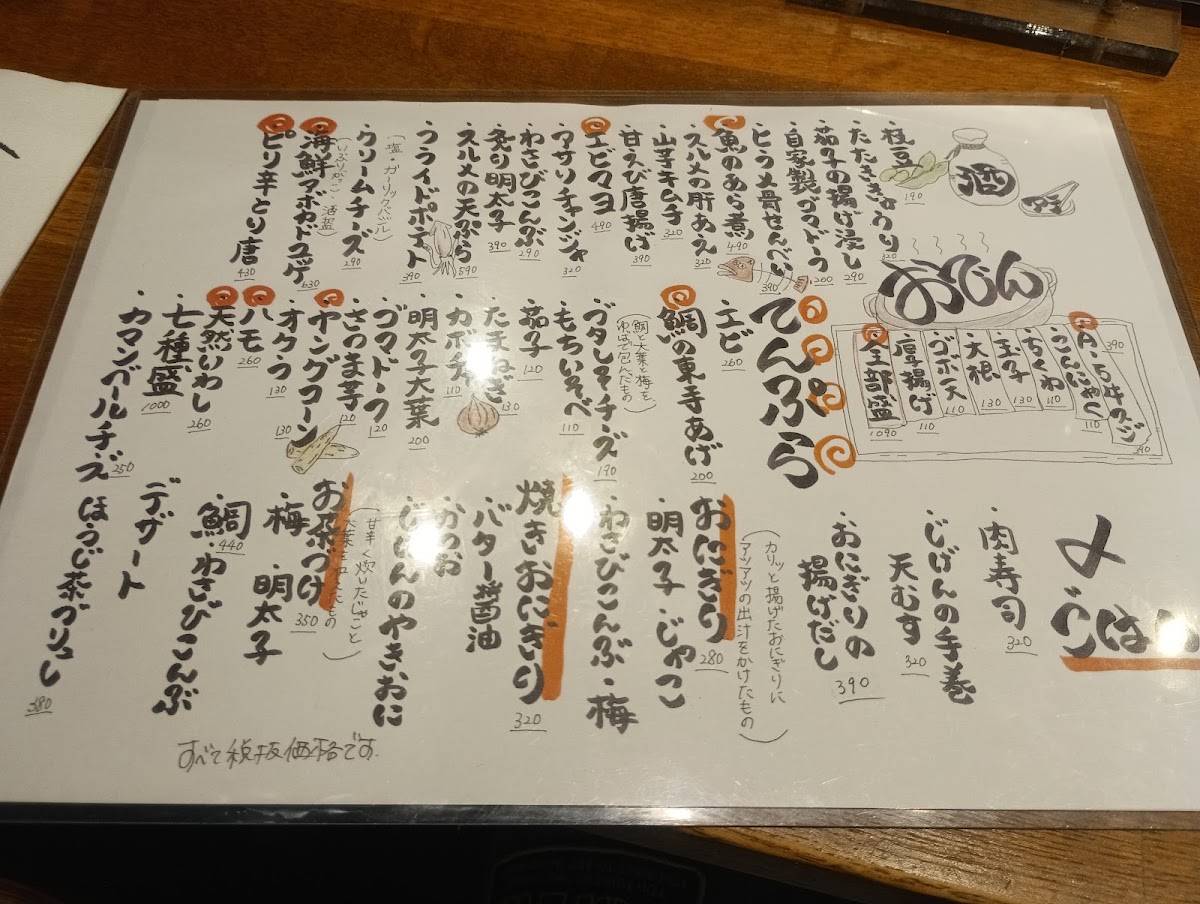 酒
・枝豆 190
・たたききゅうり 320
・茄子の揚げ浸し 290
・自家製ゴマドーフ 260
・ヒラメ骨せんべい 390
・魚のあら煮 490
・スルメの肝あえ 320
・山芋キムチ 320
・甘えび唐揚げ 390
・エビマヨ 490
・アサリチャンジャ 320
・わさびこんぶ 290
・炙り明太子 390
・スルメの天ぷら 590
・フライドポテト 390
(塩・ガーリックバジル)
・クリームチーズ 290
(いぶりがっこ・酒盗)
・海鮮アボカドユッケ 630
・ピリ辛とり唐 430
おでん
・A-5牛スジ 390
・こんにゃく 110
・ちくわ 110
・玉子 130
・大根 130
・ゴボ天 110
・厚揚げ 110
・全部盛 1090
てんぷら
・エビ 260
・鯛の東寺あげ 200
(鯛と大葉と梅を
ゆばで包んだもの)
・ブタしそチーズ 190
・もちいそべ 110
・茄子 120
・たまねぎ 130
・カボチャ 110
・明太子大葉 200
・ゴマドーフ 120
・さつま芋 120
・ヤングコーン
・オクラ 130
・ハモ 260
・天然いわし 260
・七種盛 1000
・カマンベールチーズ 250
〆
・肉寿司 320
・じげんの手巻
・天むす 320
・おにぎりの
揚げだし 390
(カリッと揚げたおにぎりに
アツアツの出汁をかけたもの)
おにぎり 280
明太子・じゃこ
・わさびこんぶ・梅
焼きおにぎり 320
・バター醤油
・かつお
・じげんのやきおに
(甘辛く炊いたじゃこと
お茶づけ 350
・梅・明太子
・鯛・わさびこんぶ
440
デザート
・ほうじ茶ブリュレ 380
すべて税抜価格です.